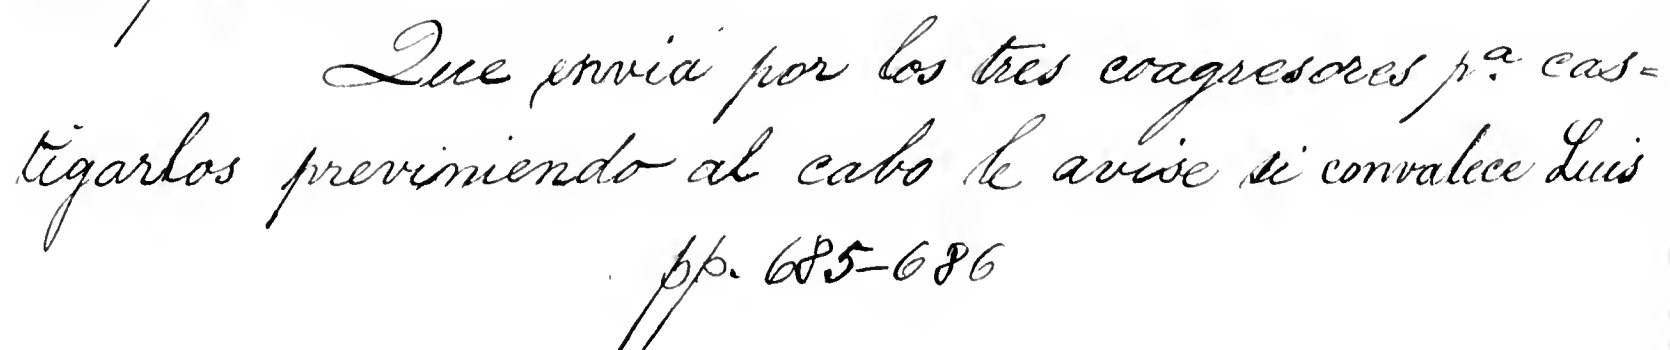 Que envia por los tres coagresores p.ª cas=
tigarlos previniendo al cabo le avise si convalece Luis
pp. 685-686